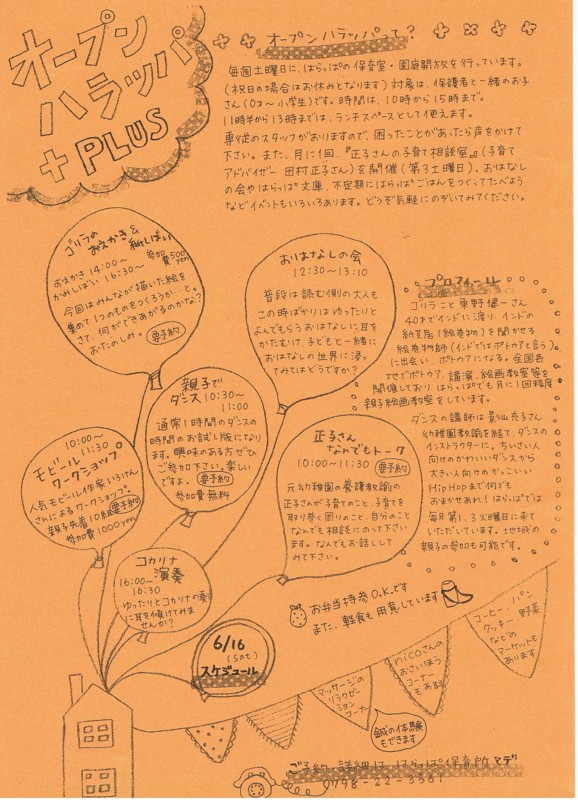 オープン
ハラッパ
+ PLUS
オープンハラッパって?
毎週土曜日に、はらっぱの保育室・園庭開放を行っています。
(祝日の場合はお休みとなります) 対象は、保護者と一緒のお子
さん(0才〜小学生)です。時間は、10時から15時まで。
11時半から13時までは、ランチスペースとして使えます。
専従のスタッフがおりますので、困ったことがあったら声をかけて
下さい。また、月に1回、『正子さんの子育て相談室』(子育て
アドバイザー 田村正子さん)を開催(第3土曜日)、おはなし
の会やはらっぱ文庫、不定期にはらっぱごはんをつくってたべよう
などイベントもいろいろあります。どうぞ気軽にのぞいてみてください。
ゴリラの
おえかき&
紙しばい
おえかき 14:00〜
かみしばい 16:30〜
参加費500yen
今回はみんなが描いた絵を
集めて1つのものをつくろうかと…。
さて、何ができあがるのかな?
おたのしみ。 要予約
おはなしの会
12:30〜13:10
普段は読む側の大人も
この時ばかりはゆったりと
よんでもらうおはなしに耳を
かたむけ、子どもと一緒に
おはなしの世界に浸っ
てみてはどうですか?
プロフィール
ゴリラこと 東野健一さん
40才でインドに渡り、インドの
紙芝居(絵巻物)を聞かせる
絵巻物師(インドではポトゥアと言う)
に出会い、ポトゥアになる。全国各
地でポトゥア、講演、絵画教室等を
開催しており、はらっぱでも月に1回程度
親子絵画教室をしています。
ダンスの講師は 充子さん
幼稚園教諭を経て、ダンスの
インストラクターに。ちいさい人
向けのかわいいダンスから
大きい人向きのかっこいい
HipHopまで何でも
おまかせあれ!はらっぱでは
毎月第1、3火曜日に来て
いただいています。地域の
親子の参加も可能です。
親子で
ダンス 10:30〜
11:00
通常1時間のダンスの
時間のお試し版になり
ます。興味のある方ぜひ
ご参加下さい。楽しい
ですよ。 要予約
参加費無料
10:00〜
11:30
モビール
ワークショップ
人気モビール作家いろけん
さんによるワークショップ。
親子先着10組 要予約
参加費1000yen
正子さん
なんでもトーク
10:00〜11:30 要予約
元幼稚園の養護教諭の
正子さんが子育てのこと、子育てを
取り巻く周りのこと、自分のこと
なんでも相談にのって下さい
ます。なんでもお話しし
てみて下さい。
コカリナ
演奏
16:00〜
16:30
ゆったりとコカリナの奏で
に耳を傾けてみま
せんか?
お弁当持参O.K.です
また、軽食も用意しています
6/16
(sat)
スケジュール
マッサージの
リラクゼー
ションコーナー
鍼の体験
もできます
nicoさんの
おさいほう
コーナー
もあるよ
コーヒー、パン
クッキー、野菜
などの
マーケットも
あります
ご予約・詳細は、はらっぱ保育所マデ
0798-22-3561